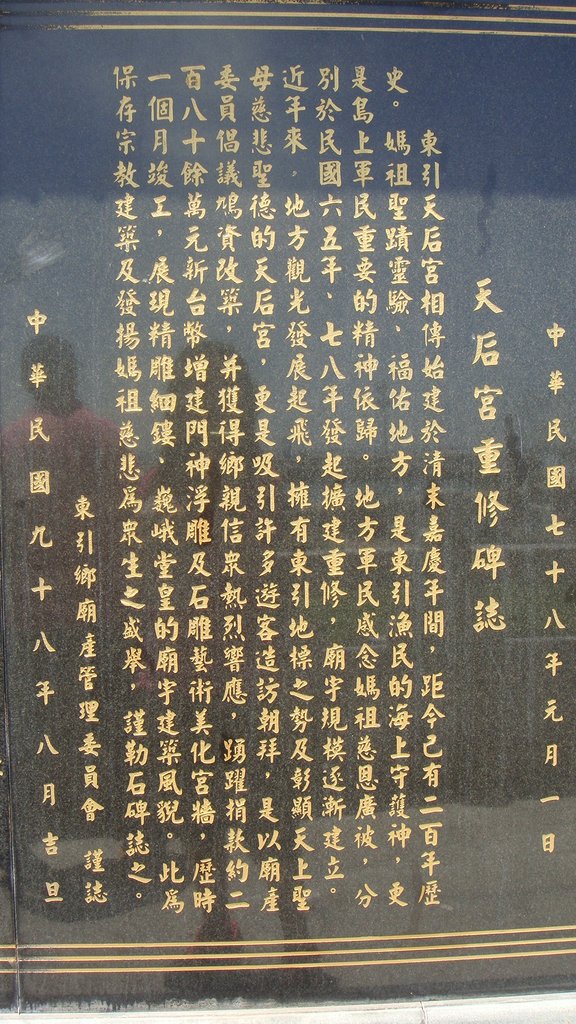 中華民國七十八年元月一日
天后宮重修碑誌
東引天后宮相傳始建於清末嘉慶年間，距今已有二百年歷
史。媽祖聖蹟靈驗、福佑地方，是東引漁民的海上守護神，更
是島上軍民重要的精神依歸。地方軍民感念媽祖慈恩廣被，分
別於民國六五年、七八年發起擴建重修，廟宇規模逐漸建立。
近年來，地方觀光發展起飛，擁有東引地標之勢及彰顯天上聖
母慈悲聖德的天后宮，更是吸引許多遊客造訪朝拜，是以廟產
委員倡議鳩資改築，并獲得鄉親信眾熱烈響應，踴躍捐款約二
百八十餘萬元新台幣增建門神浮雕及石雕藝術美化宮牆，歷時
一個月竣工，展現精雕細鏤，巍峨堂皇的廟宇建築風貌。此為
保存宗教建築及發揚媽祖慈悲為眾生之盛舉，謹勒石碑誌之。
東引鄉廟產管理委員會 謹誌
中華民國九十八年八月吉旦